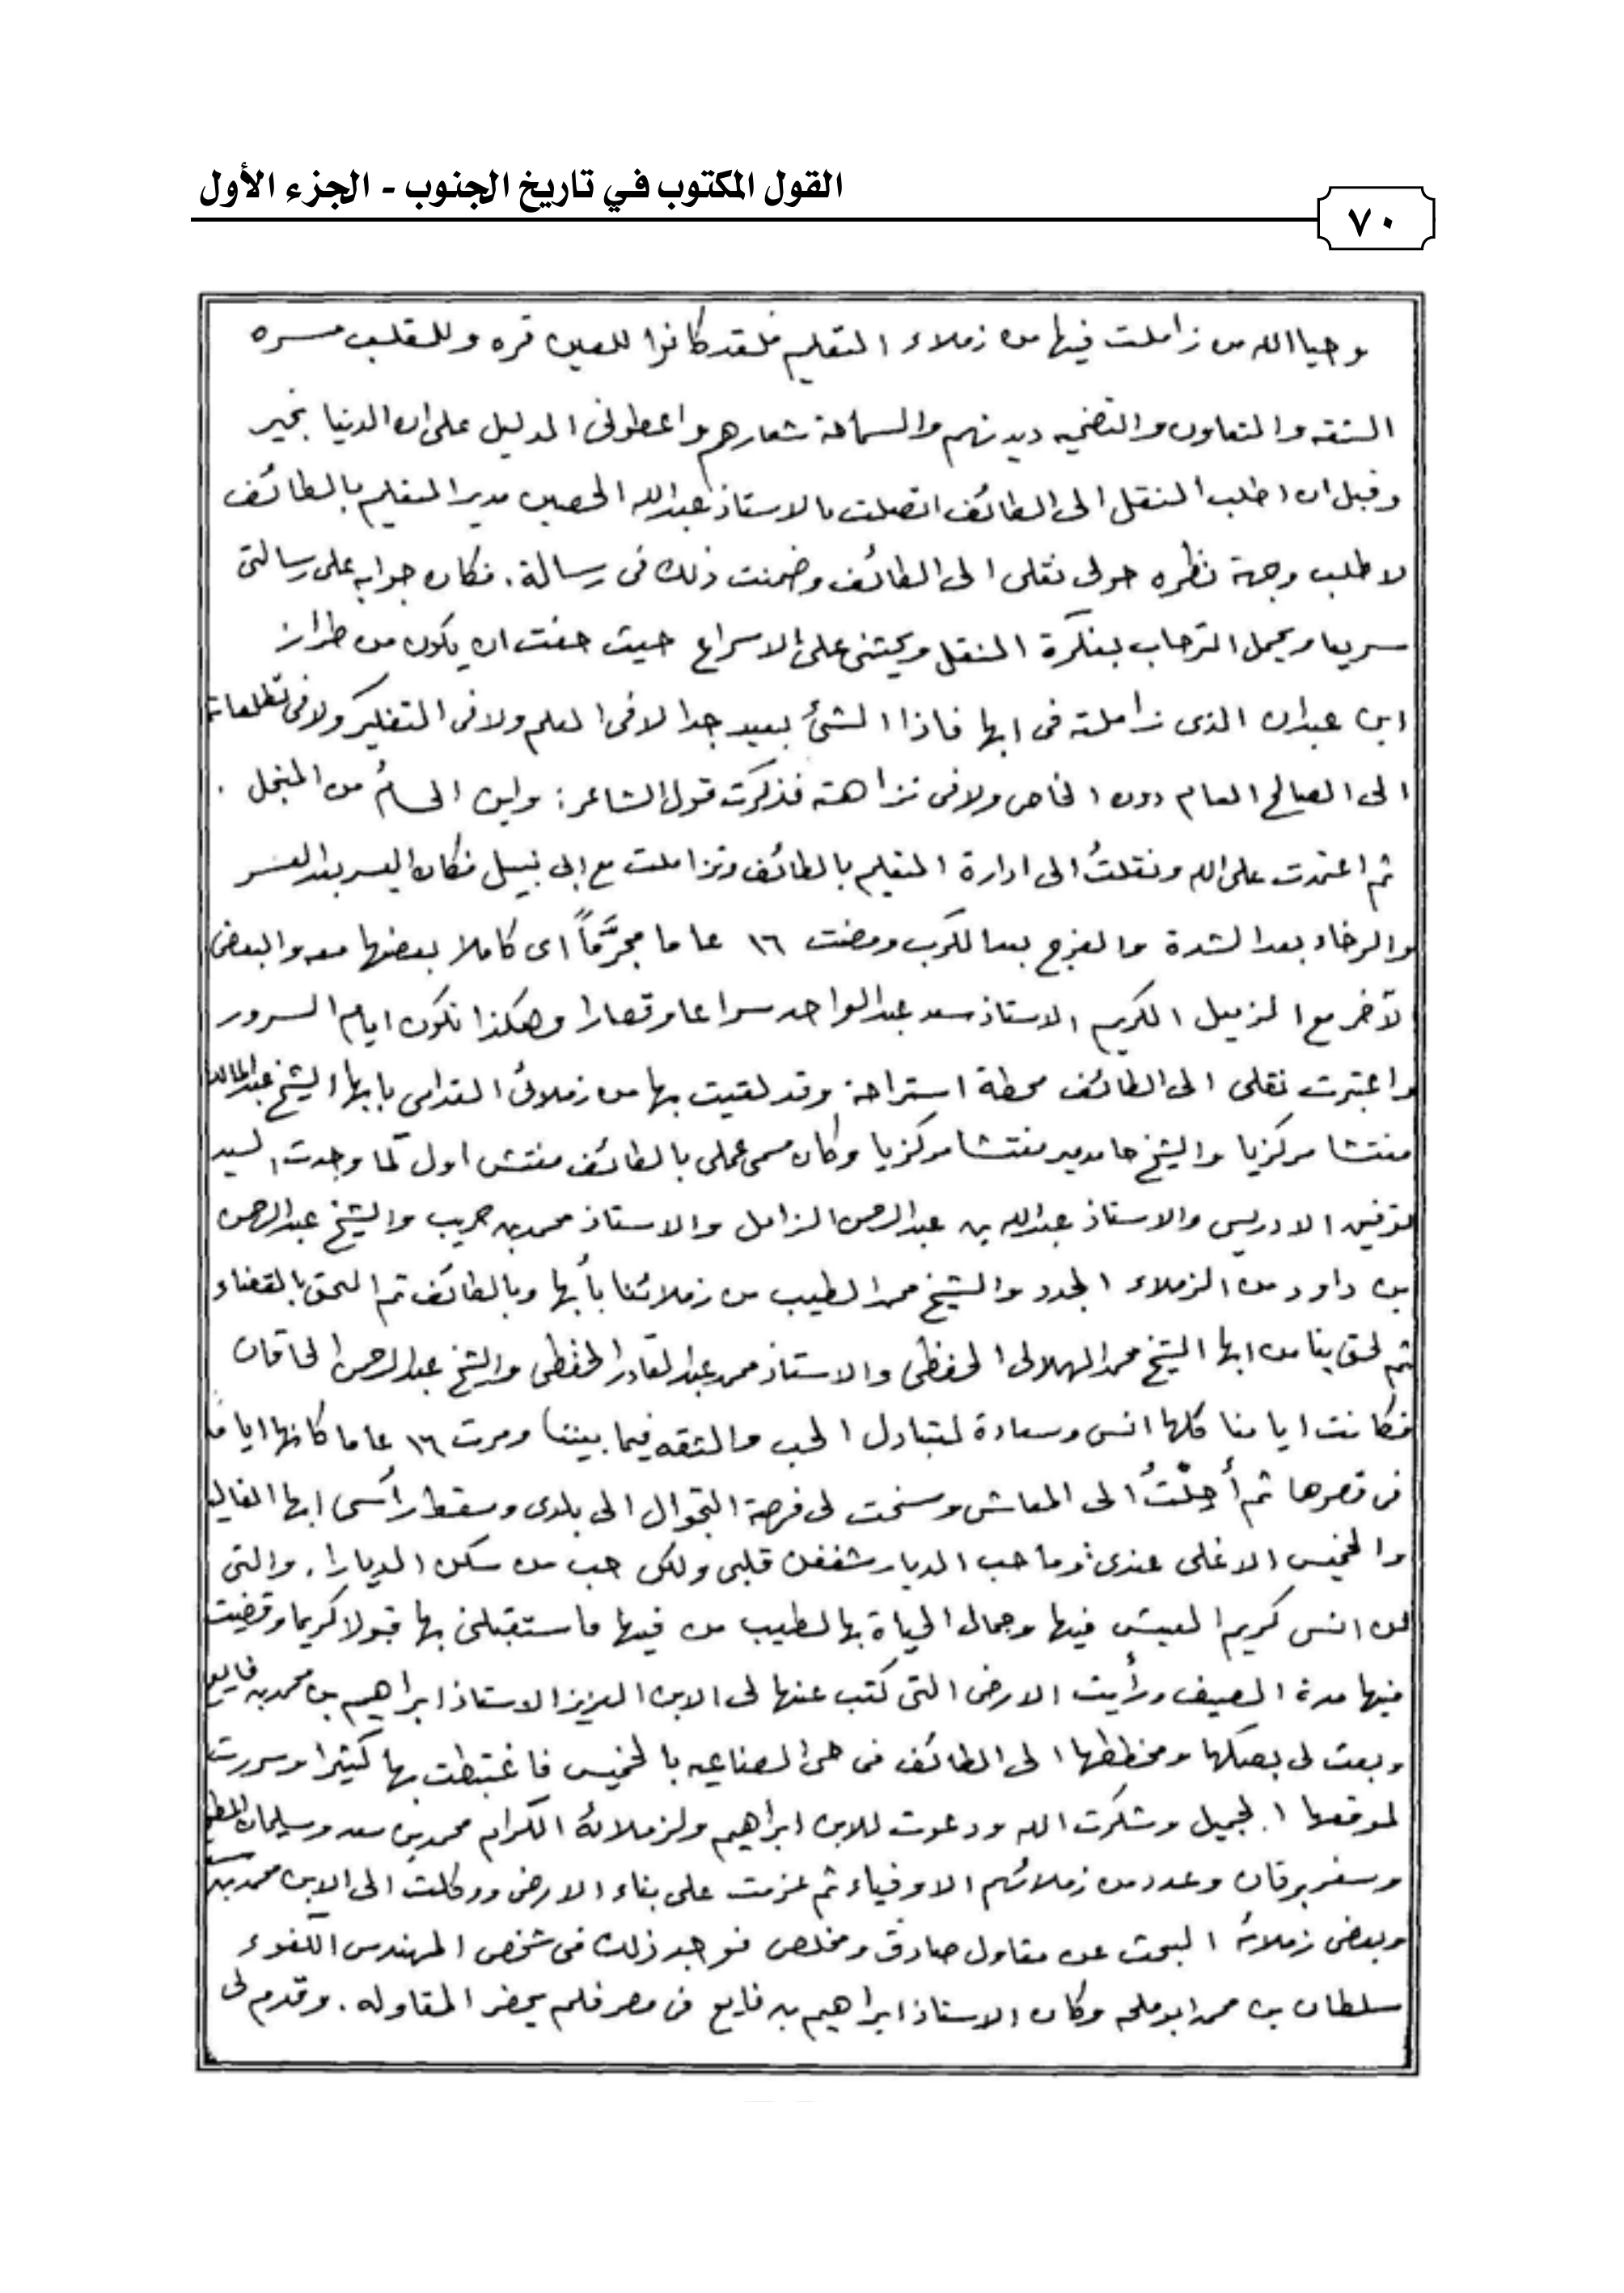 القول المكتوب في تاريخ الجنوب - الجزء الأول
٧٠
وحيا الله من زاملت فيها من زملاء التعليم فلقد كانوا للعين قره وللقلب مسره
الثقه والتعاون والتضحيه ديدنهم والسماحة شعارهم واعطوني الدليل على ان الدنيا بخير
وقبل ان اطلب النقل الى الطائف اتصلت بالاستاذ عبدالله الحصين مدير التعليم بالطائف
لاطلب وجهة نظره حول نقلى الى الطائف وضمنت ذلك فى رسالة . فكان جوابه على رسالتى
سريعا ويحمل الترحاب بفكرة النقل ويحثنى على الاسراع حيث خفت ان يكون من طراز
ابن عبدان الذى زاملته فى ابها فاذا الشئ بعيد جدا لا فى العلم ولا فى التفكير ولا فى تطلعاته
الى الصالح العام دون الخاص ولا فى نزاهته فذكرت قول الشاعر : واين الحسامُ من المنجل .
ثم اعتمدت على الله ونقلتُ الى ادارة التعليم بالطائف وتزاملت مع ابى نبيل فكان اليسر بعد العسر
والرخاء بعد الشدة والفرج بعد الكرب ومضت ١٦ عاما مجرَّماً اى كاملا بعضها معه والبعض
الآخر مع الزميل الكريم الاستاذ سعد عبدالواحد سراعا وقصارا وهكذا تكون ايام السرور
واعتبرت نقلى الى الطائف محطة استراحة وقد لقيت بها من زملائى القدامى بابها الشيخ
مفتشا مركزيا والشيخ حامد مفتشا مركزيا وكان مسمى عملى بالطائف مفتش اول كما وجدت السيد
توفيق الادريسى والاستاذ عبدالله بن عبدالرحمن الزامل والاستاذ محمد بن حريب والشيخ عبدالرحمن
بن داود من الزملاء الجدد والشيخ محمد الطيب من زملائنا بأبها وبالطائف ثم التحق بالقضاء
ثم لحق بنا من ابها الشيخ محمد الهلالى الحفظى والاستاذ محمد عبدالقادر الحفظى والشيخ عبدالرحمن الحاقان
فكانت ايامنا كلها انس وسعادة لتبادل الحب والثقه فيما بيننا ومرت ١٦ عاما كانها اياما
فى قصرها ثم أُحِلْتُ الى المعاش وسنحت لى فرصة التجوال الى بلدى ومسقط رأسى ابها الغاليه
والخميس الاغلى عندى : وما حب الديار شغفن قلبى ولكن حب من سكن الديارا . والتى
لن انس كريم العيش فيها وجمال الحياة بها لطيب من فيها فاستقبلنى بها قبولا كريما وقضيت
فيها مدة الصيف ورأيت الارض التى كتب عنها لى الابن العزيز الاستاذ ابراهيم بن محمد بن فايع
وبعث لى بصكها ومخططها الى الطائف فى حى الصناعيه بالخميس فاغتبطت بها كثيرا وسررت
لموقعها الجميل وشكرت الله ودعوت للابن ابراهيم ولزملائه الكرام محمد بن سعد وسليمان
وسفر برقان وعدد من زملائهم الاوفياء ثم عزمت على بناء الارض ووكلت الى الابن محمد بن
وبعض زملائه البحث عن مقاول صادق ومخلص فوجد ذلك فى شخص المهندس الكفوء
سلطان بن محمد ابو ملحه وكان الاستاذ ابراهيم بن فايع فى مصر فلم يحضر المقاوله . وقدم لى